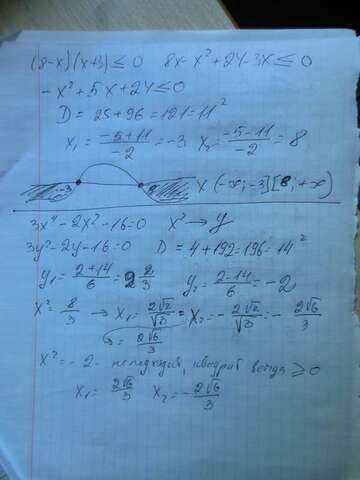 (8-x)(x+3) ≤ 0   8x-x²+24-3x ≤ 0
-x²+5x+24 ≤ 0
D = 25+96 = 121 = 11²
x₁ = (-5+11)/(-2) = -3   x₂ = (-5-11)/(-2) = 8
-3   8   x (-∞; -3][8; +∞)
3x⁴-2x²-16=0   x² → y
3y²-2y-16=0   D = 4+192=196=14²
y₁ = (2+14)/6 = 2 2/3   y₂ = (2-14)/6 = -2
x² = 8/3 → x₁ = 2√2/√3 = x₂ = -2√2/√3 = -2√6/3
= 2√6/3
x² = -2 - не подходит, квадрат всегда ≥ 0
x₁ = 2√6/3   x₂ = -2√6/3